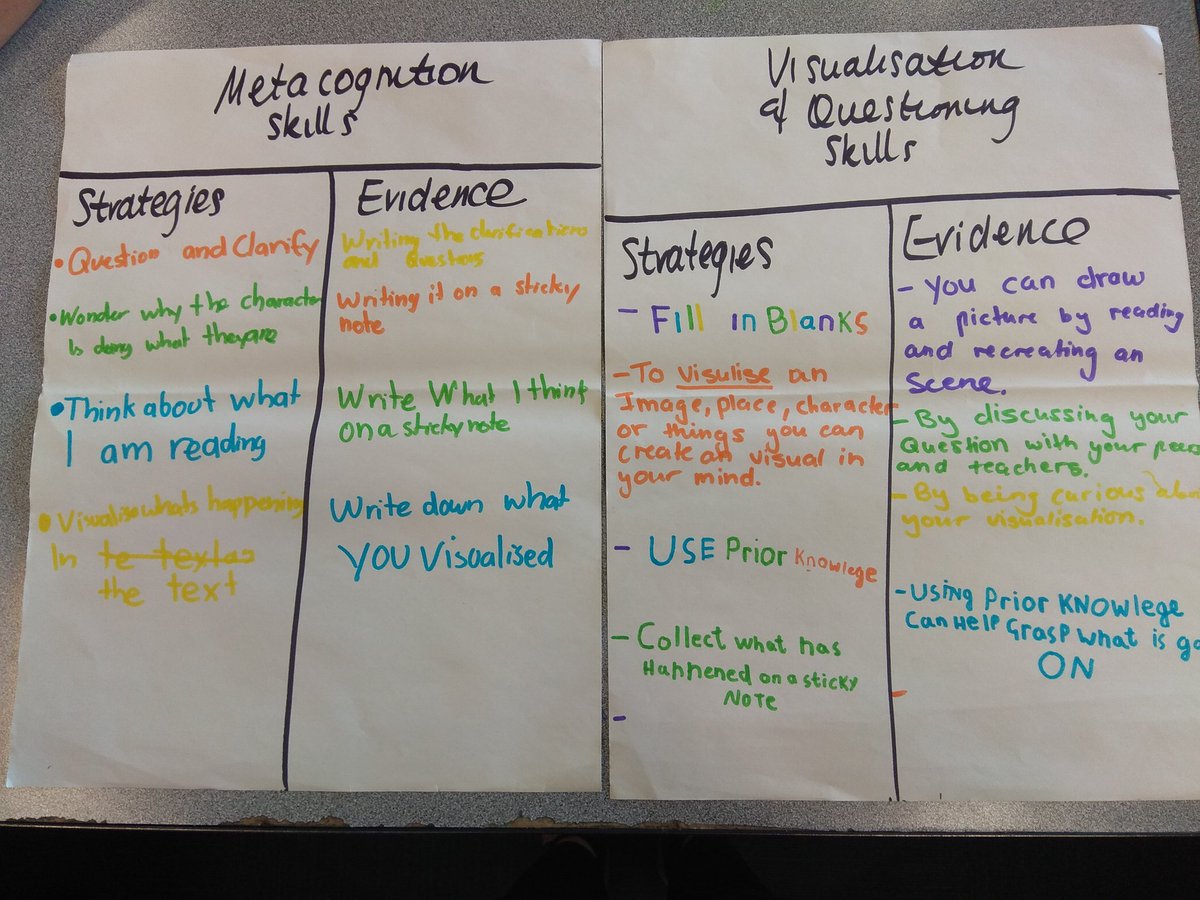 Metacognition
Skills
Strategies
• Question and Clarify
• Wonder why the character
is doing what they are
• Think about what
I am reading
• Visualise whats happening
In te textas
the text
Evidence
Writing the clarifications
and Questions
Writing it on a sticky
note
Write What I think
on a sticky note
Write down what
YOU Visualised
Visualisation
& Questioning
Skills
Strategies
- Fill in Blanks
- To visulise an
Image, place, character
or things you can
create an visual in
your mind.
- USE Prior Knowlege
- Collect what has
Happened on a sticky
NOTE
-
Evidence
- You can draw
a picture by reading
and recreating an
scene.
- By discussing your
Question with your peers
and teachers.
- By being curious about
your visualisation.
- USING PRIOR KNOWLEGE
Can HELP GRASP WHAT is go
ON
-